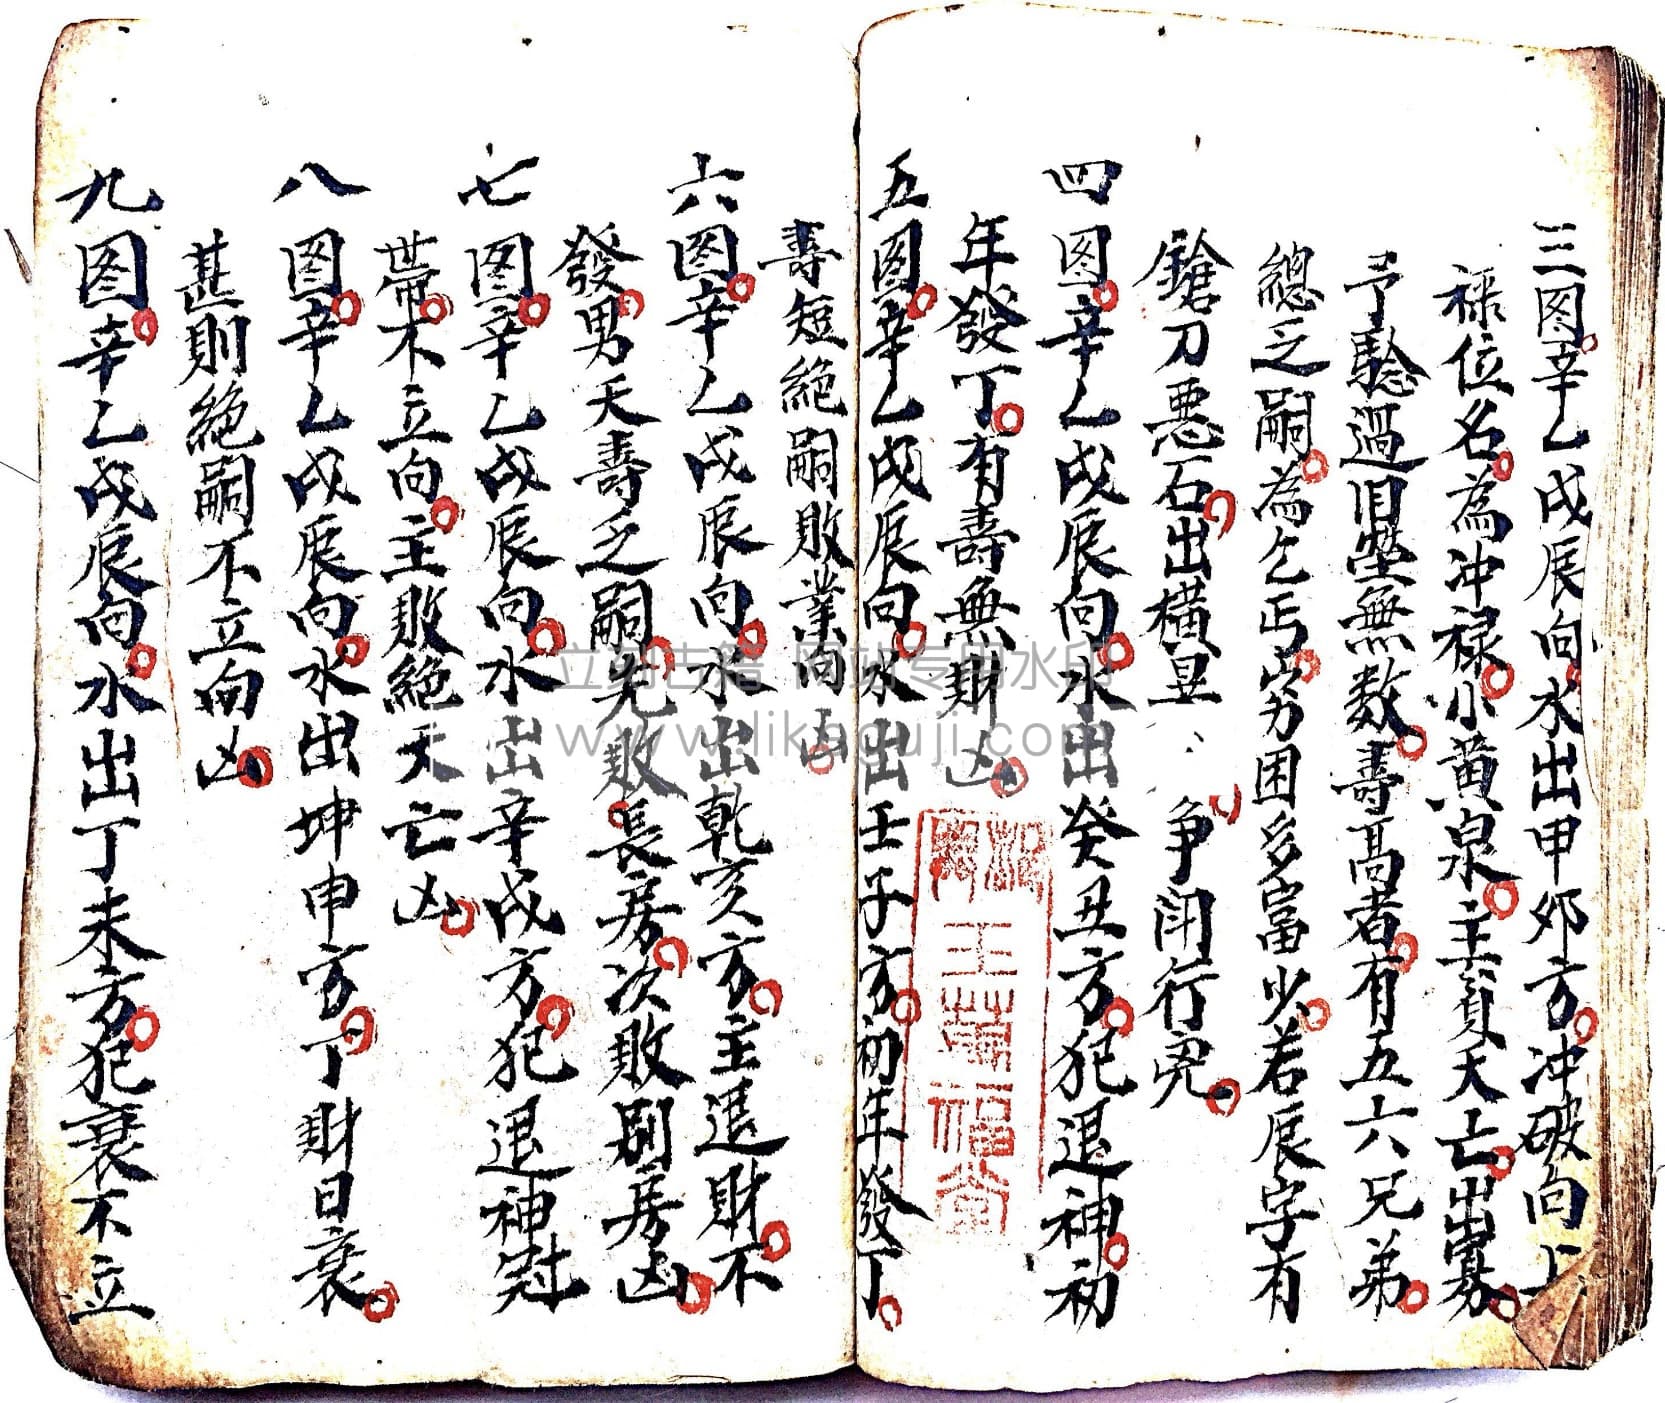 三图辛乙戌辰向水出甲卯方冲破向上
禄位名為冲禄小黄泉主貧夭亡出寡
予驗過旧坟無数壽髙者有五六兄弟
總乏嗣為乞丐穷困多富少若辰字有
鎗刀悪石出橫旦、争閗行兇
四图辛乙戌辰向水出癸丑方犯退神初
年發丁有壽無財凶
五图辛乙戌辰向水出壬子方初年發丁
壽短絕嗣敗業向凶
六图辛乙戌辰向水出乾亥方主退財不
發男夭壽乏嗣先敗長房次敗別房凶
七图辛乙戌辰向水出辛戌方犯退神冠
帶不立向主敗絕夭亡凶
八图辛乙戌辰向水出坤申方丁財日衰
甚則絕嗣不立向凶
九图辛乙戌辰向水出丁未方犯衰不立
王萬福堂
立刻古籍 网站专用水印
www.likeguji.com